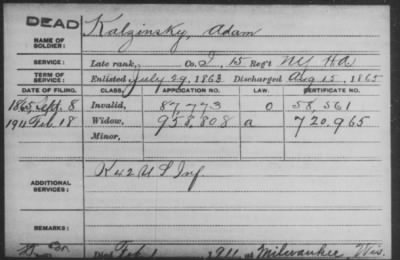 DEAD
NAME OF SOLDIER: Kalzinsky, Adam
SERVICE: Late rank, Co. I, 15 Reg't NY HA
TERM OF SERVICE: Enlisted July 29, 1863 Discharged Aug 15, 1865
DATE OF FILING. CLASS. APPLICATION NO. LAW. CERTIFICATE NO.
1865 Sept. 8 Invalid, 87,773 O 58,561
1911 Feb. 18 Widow, 958,808 a 720,965
Minor,
ADDITIONAL SERVICES: K 42 U S Inf.
REMARKS:
Died Feb 1, 1911, at Milwaukee, Wis.